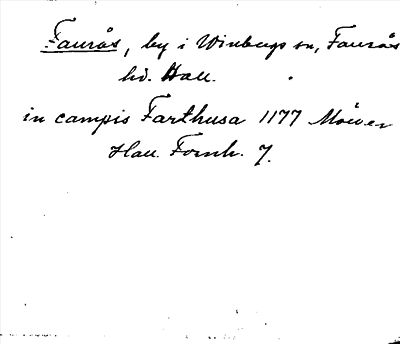 Faurås, by i Winbergs sn, Faurås
hd. Hall.
in campis Farthusa 1177 Möwer
Hall. Fornh. 7.